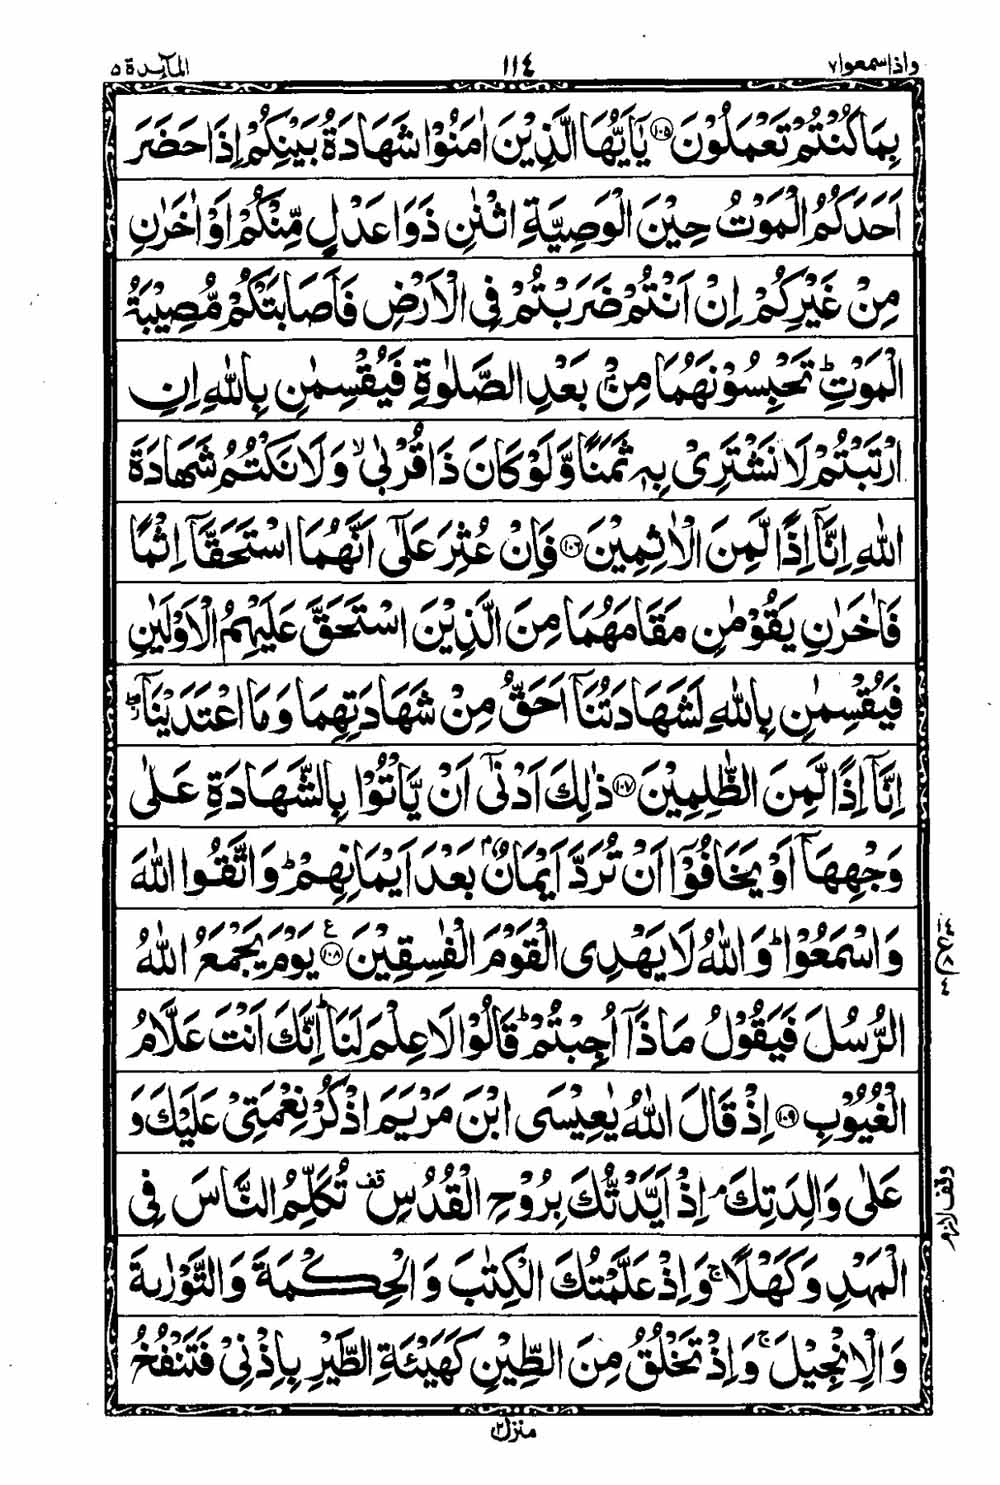 واذاسمعوا۷ ۱۱٤ المآىِٕدة ۵
بِمَا كُنْتُمْ تَعْمَلُوْنَ ۝۱۰۵ يٰۤاَيُّهَا الَّذِيْنَ اٰمَنُوْا شَهَادَةُ بَيْنِكُمْ اِذَا حَضَرَ
اَحَدَكُمُ الْمَوْتُ حِيْنَ الْوَصِيَّةِ اثْنٰنِ ذَوَا عَدْلٍ مِّنْكُمْ اَوْ اٰخَرٰنِ
مِنْ غَيْرِكُمْ اِنْ اَنْتُمْ ضَرَبْتُمْ فِي الْاَرْضِ فَاَصَابَتْكُمْ مُّصِيْبَةُ
الْمَوْتِ ؕ تَحْبِسُوْنَهُمَا مِنْۢ بَعْدِ الصَّلٰوةِ فَيُقْسِمٰنِ بِاللّٰهِ اِنِ
ارْتَبْتُمْ لَا نَشْتَرِيْ بِهٖ ثَمَنًا وَّلَوْ كَانَ ذَا قُرْبٰى ۙ وَلَا نَكْتُمُ شَهَادَةَ
اللّٰهِ اِنَّاۤ اِذًا لَّمِنَ الْاٰثِمِيْنَ ۝۱۰۶ فَاِنْ عُثِرَ عَلٰۤى اَنَّهُمَا اسْتَحَقَّاۤ اِثْمًا
فَاٰخَرٰنِ يَقُوْمٰنِ مَقَامَهُمَا مِنَ الَّذِيْنَ اسْتَحَقَّ عَلَيْهِمُ الْاَوْلَيٰنِ
فَيُقْسِمٰنِ بِاللّٰهِ لَشَهَادَتُنَاۤ اَحَقُّ مِنْ شَهَادَتِهِمَا وَمَا اعْتَدَيْنَاۤ ۖ
اِنَّاۤ اِذًا لَّمِنَ الظّٰلِمِيْنَ ۝۱۰۷ ذٰلِكَ اَدْنٰۤى اَنْ يَّاْتُوْا بِالشَّهَادَةِ عَلٰى
وَجْهِهَاۤ اَوْ يَخَافُوْۤا اَنْ تُرَدَّ اَيْمَانٌۢ بَعْدَ اَيْمَانِهِمْ ؕ وَاتَّقُوا اللّٰهَ
وَاسْمَعُوْا ؕ وَاللّٰهُ لَا يَهْدِى الْقَوْمَ الْفٰسِقِيْنَ ۝۱۰۸ ع يَوْمَ يَجْمَعُ اللّٰهُ
الرُّسُلَ فَيَقُوْلُ مَاذَاۤ اُجِبْتُمْ ؕ قَالُوْا لَا عِلْمَ لَنَا ؕ اِنَّكَ اَنْتَ عَلَّامُ
الْغُيُوْبِ ۝۱۰۹ اِذْ قَالَ اللّٰهُ يٰعِيْسَى ابْنَ مَرْيَمَ اذْكُرْ نِعْمَتِيْ عَلَيْكَ وَ
عَلٰى وَالِدَتِكَ ۘ اِذْ اَيَّدْتُّكَ بِرُوْحِ الْقُدُسِ قف تُكَلِّمُ النَّاسَ فِي
الْمَهْدِ وَكَهْلًا ۚ وَاِذْ عَلَّمْتُكَ الْكِتٰبَ وَالْحِكْمَةَ وَالتَّوْرٰىةَ
وَالْاِنْجِيْلَ ۚ وَاِذْ تَخْلُقُ مِنَ الطِّيْنِ كَهَيْئَةِ الطَّيْرِ بِاِذْنِيْ فَتَنْفُخُ
وقف لازم
منزل۲